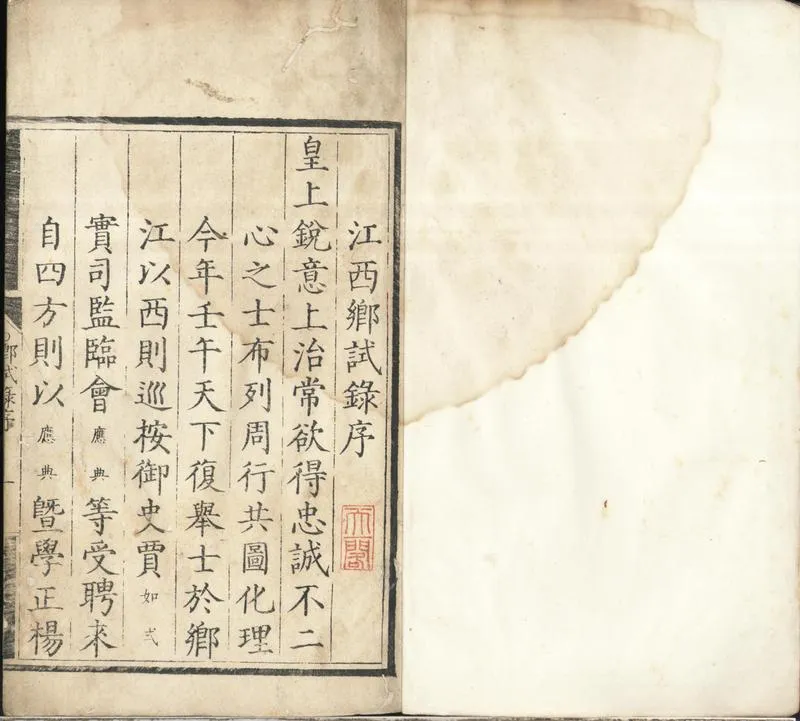 江西鄉試錄序
天一閣
皇上銳意上治常欲得忠誠不二
心之士布列周行共圖化理
今年壬午天下復舉士於鄉
江以西則巡按御史賈如式
實司監臨會應典等受聘來
自四方則以應典暨學正楊
鄉試錄序
一